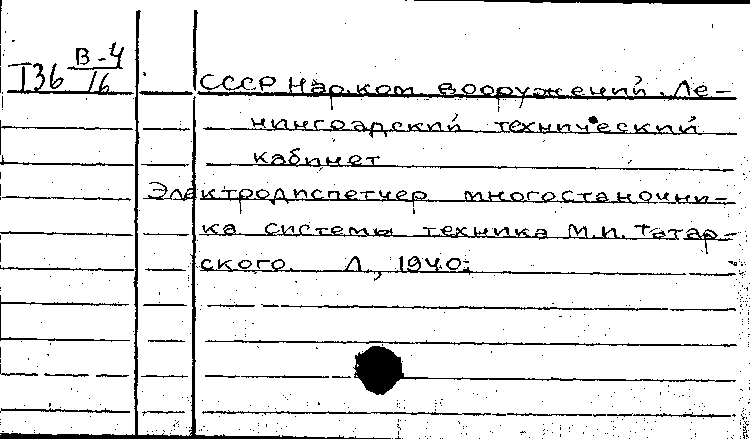 I36 В-4/16
СССР Нар.ком. вооружений. Ле-
нингоадский технический
кабинет
Электродиспетчер многостаночни-
ка системы техника М.И. Татар-
ского. Л., 1940.